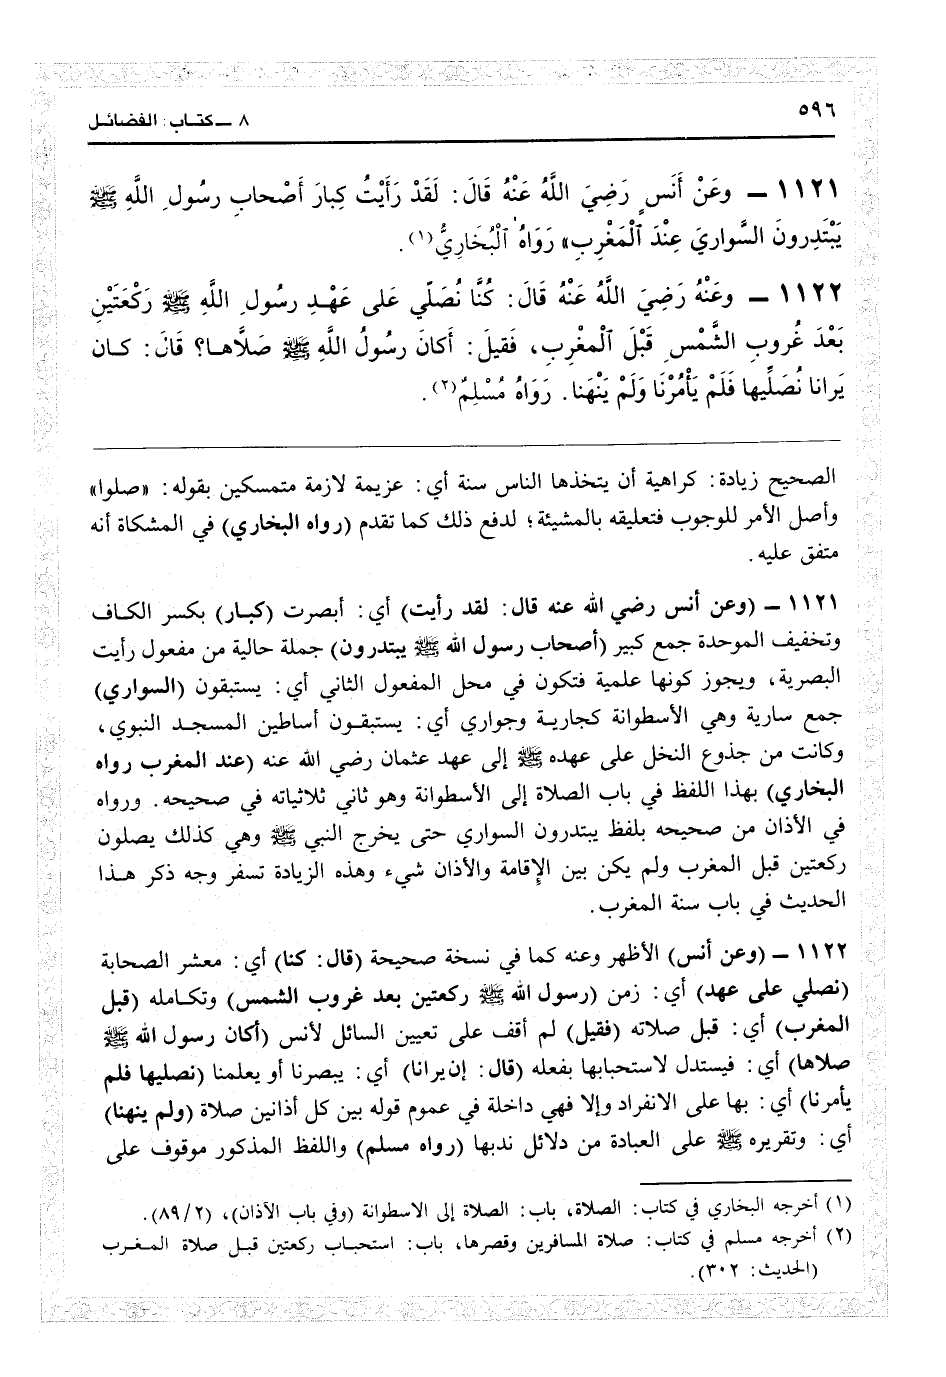 ٥٩٦
٨ ــ كتـاب: الفضائـل
١١٢١ ــ وعَنْ أَنَسٍ رَضِيَ اللَّهُ عَنْهُ قَالَ: لَقَدْ رَأَيْتُ كِبارَ أَصْحابِ رسُولِ اللَّهِ ﷺ
يَبْتَدِرونَ السَّوارِيَ عِنْدَ ٱلْمَغْرِبِ» رَوَاهُ ٱلْبُخَارِيُّ(١).
١١٢٢ ــ وعَنْهُ رَضِيَ اللَّهُ عَنْهُ قَالَ: كُنَّا نُصَلّي عَلى عَهْدِ رسُولِ اللَّهِ ﷺ رَكْعَتَيْنِ
بَعْدَ غُروبِ الشَّمْسِ قَبْلَ ٱلْمَغْرِبِ، فَقيلَ: أَكانَ رسُولُ اللَّهِ ﷺ صَلَّاهـا؟ قَالَ: كـان
يَرانا نُصَلِّيها فَلَمْ يَأْمُرْنَا وَلَمْ يَنْهَنا. رَوَاهُ مُسْلِمٌ(٢).
الصحيح زيادة: كراهية أن يتخذها الناس سنة أي: عزيمة لازمة متمسكين بقوله: «صلوا»
وأصل الأمر للوجوب فتعليقه بالمشيئة؛ لدفع ذلك كما تقدم (رواه البخاري) في المشكاة أنه
متفق عليه.
١١٢١ ــ (وعن أنس رضي الله عنه قال: لقد رأيت) أي: أبصرت (كبـار) بكسر الكـاف
وتخفيف الموحدة جمع كبير (أصحاب رسول الله ﷺ يبتدرون) جملة حالية من مفعول رأيت
البصرية، ويجوز كونها علمية فتكون في محل المفعول الثاني أي: يستبقون (السواري)
جمع سارية وهي الأسطوانة كجاريـة وجواري أي: يستبقـون أساطين المسجـد النبوي،
وكانت من جذوع النخل على عهده ﷺ إلى عهد عثمان رضي الله عنه (عند المغرب رواه
البخاري) بهذا اللفظ في باب الصلاة إلى الأسطوانة وهو ثاني ثلاثياته في صحيحه. ورواه
في الأذان من صحيحه بلفظ يبتدرون السواري حتى يخرج النبي ﷺ وهي كذلك يصلون
ركعتين قبل المغرب ولم يكن بين الإقامة والأذان شيء وهذه الزيادة تسفر وجه ذكر هـذا
الحديث في باب سنة المغرب.
١١٢٢ ــ (وعن أنس) الأظهر وعنه كما في نسخة صحيحة (قال: كنا) أي: معشر الصحابة
(نصلي على عهد) أي: زمن (رسول الله ﷺ ركعتين بعد غروب الشمس) وتكـامله (قبل
المغرب) أي: قبل صلاته (فقيل) لم أقف على تعيين السائل لأنس (أكان رسول الله ﷺ
صلاها) أي: فيستدل لاستحبابها بفعله (قال: إن يرانا) أي: يبصرنا أو يعلمنا (نصليها فلم
يأمرنا) أي: بها على الانفراد وإلا فهي داخلة في عموم قوله بين كل أذانين صلاة (ولم ينهنا)
أي: وتقريره ﷺ على العبادة من دلائل ندبها (رواه مسلم) واللفظ المذكور موقوف على
(١) أخرجه البخاري في كتاب: الصلاة، باب: الصلاة إلى الاسطوانة (وفي باب الآذان)، (٨٩/٢).
(٢) أخرجه مسلم في كتاب: صلاة المسافرين وقصرها، باب: استحبـاب ركعتين قبـل صلاة المـغـرب
(الحديث: ٣٠٢).